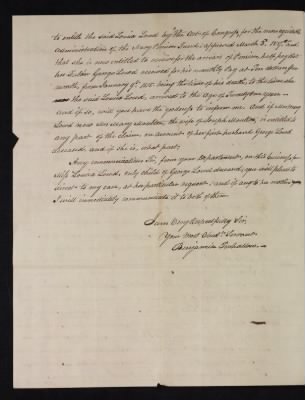 to entitle the said Louisa Loud by the Act of Congress for the more equitable
Administration of the Navy Pension Fund, approved March 3d. 1837. and
that she is now entitled to receive the arrears of Pension, with pay for
her Father George Loud received for his monthly Pay at Ten dollars per
month, from January 9th. 1815. being the time of his death, to the time she
the said Louisa Loud, arrived to the Age of Twenty one years —
and if so, will you have the goodness to inform me. And if said Mary
Loud now Mary Moulton, the wife of Joseph Moulton, is entitled to
any part of the Claim, on account of her first husband George Loud
deceased, and if she is, what part;
Any communication Sir, from your Department, on this business for
Miss Louisa Loud, only child of George Loud deceased, you will please to
direct to my care, at her particular request; and if any to her mother
I will immediately communicate it to both of them.
I am Very Respectfully Sir,
Your most Obedt. Servant
Benjamin